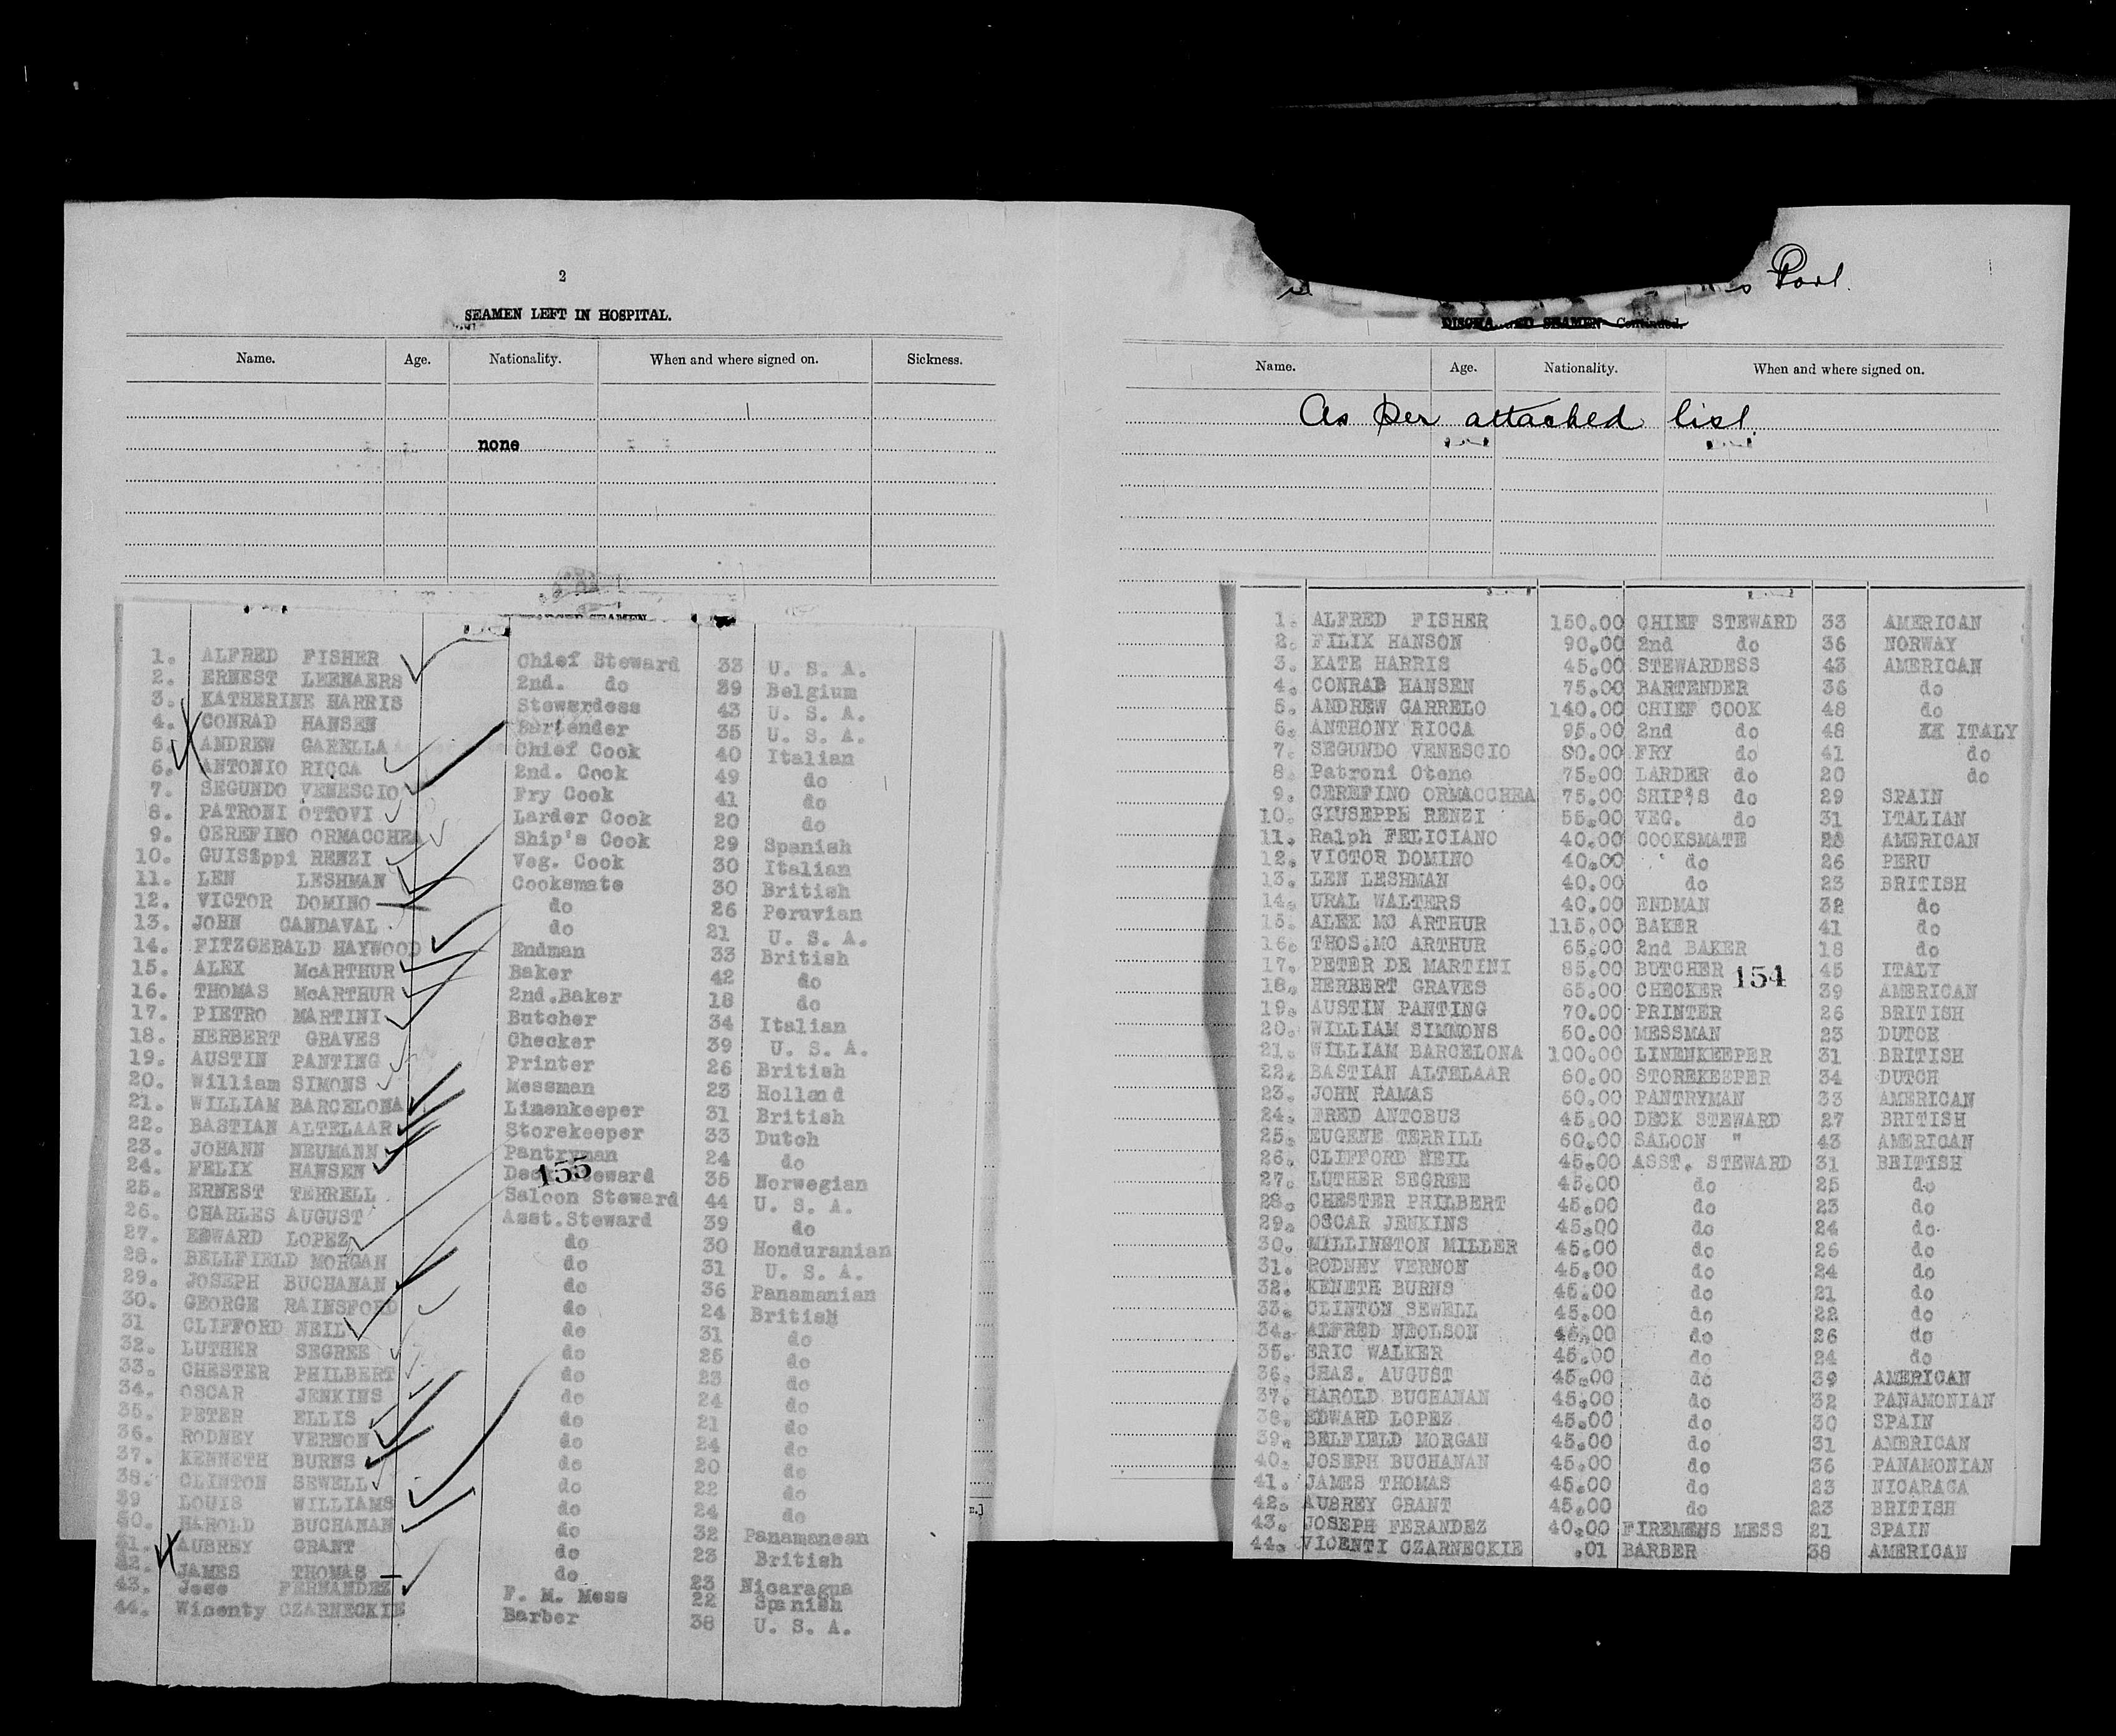 2
SEAMEN LEFT IN HOSPITAL.
Name. Age. Nationality. When and where signed on. Sickness.
none
1. ALFRED FISHER Chief Steward 33 U. S. A.
2. ERNEST LEENAERS 2nd. do 39 Belgium
3. KATHERINE HARRIS Stewardess 43 U. S. A.
4. CONRAD HANSEN Bartender 35 U. S. A.
5. ANDREW GARELLA Chief Cook 40 Italian
6. ANTONIO RICCA 2nd. Cook 49 do
7. SEGUNDO VENESCIO Fry Cook 41 do
8. PATRONI OTTOVI Larder Cook 20 do
9. CEREFINO ORMACCHEA Ship's Cook 29 Spanish
10. GUISEppi RENZI Veg. Cook 30 Italian
11. LEN LESHMAN Cooksmate 30 British
12. VICTOR DOMINO do 26 Peruvian
13. JOHN CANDAVAL do 21 U. S. A.
14. FITZGERALD HAYWOOD Endman 33 British
15. ALEX McARTHUR Baker 42 do
16. THOMAS McARTHUR 2nd.Baker 18 do
17. PIETRO MARTINI Butcher 34 Italian
18. HERBERT GRAVES Checker 39 U. S. A.
19. AUSTIN PANTING Printer 26 British
20. William SIMONS Messman 23 Holland
21. WILLIAM BARCELONA Linenkeeper 31 British
22. BASTIAN ALTELAAR Storekeeper 33 Dutch
23. JOHANN NEUMANN Pantryman 24 do
24. FELIX HANSEN Deck Steward 35 Norwegian
155
25. ERNEST TERRELL Saloon Steward 44 U. S. A.
26. CHARLES AUGUST Asst.Steward 39 do
27. EDWARD LOPEZ do 30 Honduranian
28. BELLFIELD MORGAN do 31 U. S. A.
29. JOSEPH BUCHANAN do 36 Panamanian
30. GEORGE RAINSFORD do 24 British
31 CLIFFORD NEIL do 31 do
32. LUTHER SEGREE do 25 do
33. CHESTER PHILBERT do 23 do
34. OSCAR JENKINS do 24 do
35. PETER ELLIS do 21 do
36. RODNEY VERNON do 24 do
37. KENNETH BURNS do 20 do
38. CLINTON SEWELL do 22 do
39 LOUIS WILLIAMS do 24 do
40. HAROLD BUCHANAN do 32 Panamanean
41. AUBREY GRANT do 23 British
42. JAMES THOMAS do 23 Nicaragua
43. Jose FERNANDEZ F. M. Mess 22 Spanish
44. Wicenty CZARNECKIE Barber 38 U. S. A.
Port.
SEAMEN Continued.
Name. Age. Nationality. When and where signed on.
As per attached list
1. ALFRED FISHER 150.00 CHIEF STEWARD 33 AMERICAN
2. FILIX HANSON 90.00 2nd do 36 NORWAY
3. KATE HARRIS 45.00 STEWARDESS 43 AMERICAN
4. CONRAD HANSEN 75.00 BARTENDER 36 do
5. ANDREW GARRELO 140.00 CHIEF COOK 48 do
6. ANTHONY RICCA 95.00 2nd do 48 ITALY
7. SEGUNDO VENESCIO 80.00 FRY do 41 do
8. Patroni Oteno 75.00 LARDER do 20 do
9. CEREFINO ORMACCHEA 75.00 SHIP'S do 29 SPAIN
10. GIUSEPPE RENZI 55.00 VEG. do 31 ITALIAN
11. Ralph FELICIANO 40.00 COOKSMATE 28 AMERICAN
12. VICTOR DOMINO 40.00 do 26 PERU
13. LEN LESHMAN 40.00 do 23 BRITISH
14. URAL WALTERS 40.00 ENDMAN 32 do
15. ALEX MC ARTHUR 115.00 BAKER 41 do
16. THOS.MC ARTHUR 65.00 2nd BAKER 18 do
17. PETER DE MARTINI 85.00 BUTCHER 45 ITALY
154
18. HERBERT GRAVES 65.00 CHECKER 39 AMERICAN
19. AUSTIN PANTING 70.00 PRINTER 26 BRITISH
20. WILLIAM SIMMONS 50.00 MESSMAN 23 DUTCH
21. WILLIAM BARCELONA 100.00 LINENKEEPER 31 BRITISH
22. BASTIAN ALTELAAR 60.00 STOREKEEPER 34 DUTCH
23. JOHN RAMAS 60.00 PANTRYMAN 33 AMERICAN
24. FRED ANTOBUS 45.00 DECK STEWARD 27 BRITISH
25. EUGENE TERRILL 60.00 SALOON " 43 AMERICAN
26. CLIFFORD NEIL 45.00 ASST. STEWARD 31 BRITISH
27. LUTHER SEGREE 45.00 do 25 do
28. CHESTER PHILBERT 45.00 do 23 do
29. OSCAR JENKINS 45.00 do 24 do
30. MILLINGTON MILLER 45.00 do 26 do
31. RODNEY VERNON 45.00 do 24 do
32. KENETH BURNS 45.00 do 21 do
33. CLINTON SEWELL 45.00 do 22 do
34. ALFRED NEOLSON 45.00 do 26 do
35. ERIC WALKER 45.00 do 24 do
36. CHAS. AUGUST 45.00 do 39 AMERICAN
37. HAROLD BUCHANAN 45.00 do 32 PANAMONIAN
38. EDWARD LOPEZ 45.00 do 30 SPAIN
39. BELFIELD MORGAN 45.00 do 31 AMERICAN
40. JOSEPH BUCHANAN 45.00 do 36 PANAMONIAN
41. JAMES THOMAS 45.00 do 23 NICARAGA
42. AUBREY GRANT 45.00 do 23 BRITISH
43. JOSEPH FERANDEZ 40.00 FIREMENS MESS 21 SPAIN
44. VICENTI CZARNECKIE .01 BARBER 38 AMERICAN